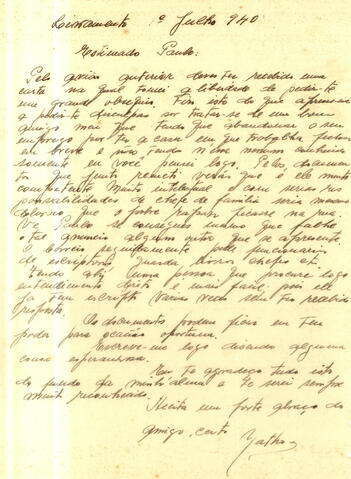 Livramento 1º Julho 940
Estimado Paulo:
Pelo avião anterior deves ter recebido uma
carta na qual tomei a liberdade de pedir-te
um grande obsequio. Fiz isto do que apresso-me
a pedir-te desculpas por tratar-se de um bom
amigo meu que tendo que abandonar o seu
emprego por ter a casa em que trabalha fechar
em breve e não tendo
somente em você pensei logo. Pelos documen-
tos que junto remeti verás que é ele muito
competente. Muito inteligente e com serias res-
ponsabilidades de chefe de familia seria mesmo
doloroso que o pobre rapaz ficasse na rua.
Vê Paulo se consegues mesmo que falhe
o tal anuncio algum outro que se apresente.
de escriptorio, Guarda livros chefe etc
tendo ahi uma pessoa que procure logo
entendimento direto é mais facil; pois ele
já tem escripto varias vezes sem ter recebido
resposta.
Os documentos podem ficar em teu
poder para ocasião oportuna.
Escreve-me logo dizendo alguma
cousa esperançosa.
te agradeço tudo isto
do fundo da minh'alma e te serei sempre
muito reconhecido.
Aceita um forte abraço do
amigo, certo